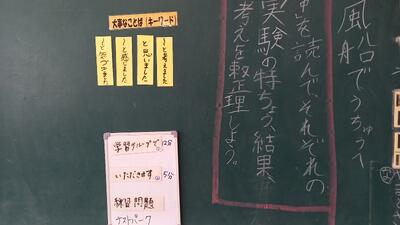 風船でうちゅうへ
申を読んで、それぞれの
実験の特ちょう、結果、
考えを整理しよう。
大事なことば「キーワード」
〜と考えました
と思いました
〜と感じました
学習グループで 12分
いただきます 5分
練習問題
テストパーク